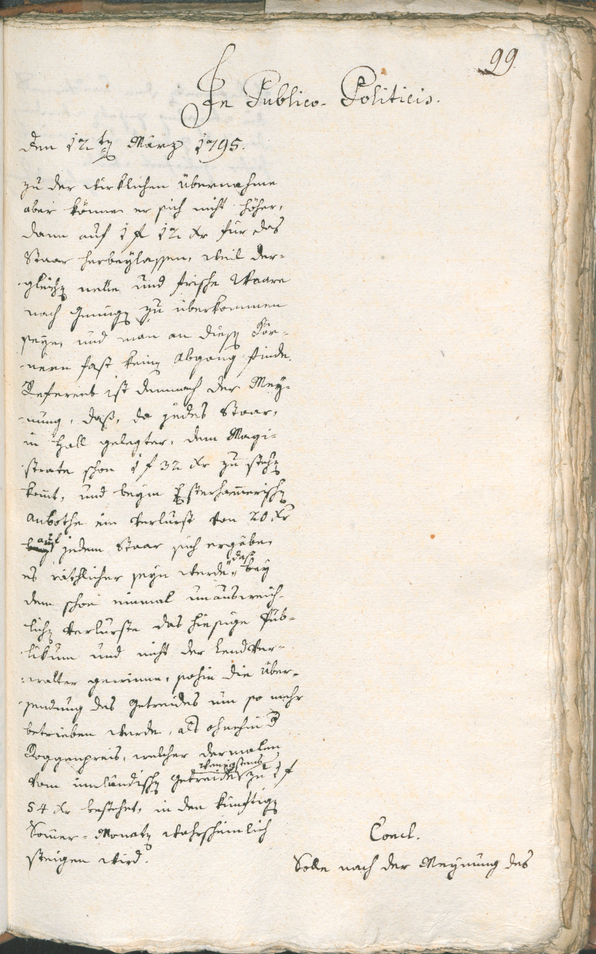 99.
In Publico-Politicis.
den 12ten März 1795.
zu der wirklichen Übernahme
aber könne er sich nicht höher,
dann auf 1 f 12 xr für das
Staar herbeylassen, weil der-
gleichen neue und frische Waare
noch genug zu überkommen
seyen, und man an diesen Kör-
nern fast keinen Abgang finde.
Referent ist demnach der Mey-
nung, daß, da jedes Staar,
in Hall gelegter, dem Magi-
strate schon 1 f 32 xr zu stehen
kommt, und beym
Anbothe ein Verlurst von 20 xr
auf jedem Staar sich ergäbe,
es räthlicher seyn werde, daß bey
dem schon einmal unausweich-
lichen Verlurste das hiesige Pub-
likum und nicht der Landver-
walter gewinne, sohin die Über-
sendung des Getreides um so mehr
betrieben werde, als ohnehin der
Roggenpreis, welcher dermalen
vom inländischen Getreide wenigstens zu 1 f
54 xr bestehet, in den künftigen
Sommer-Monaten wahrscheinlich
steigen wird.
Concl.
Solle nach der Meynung des